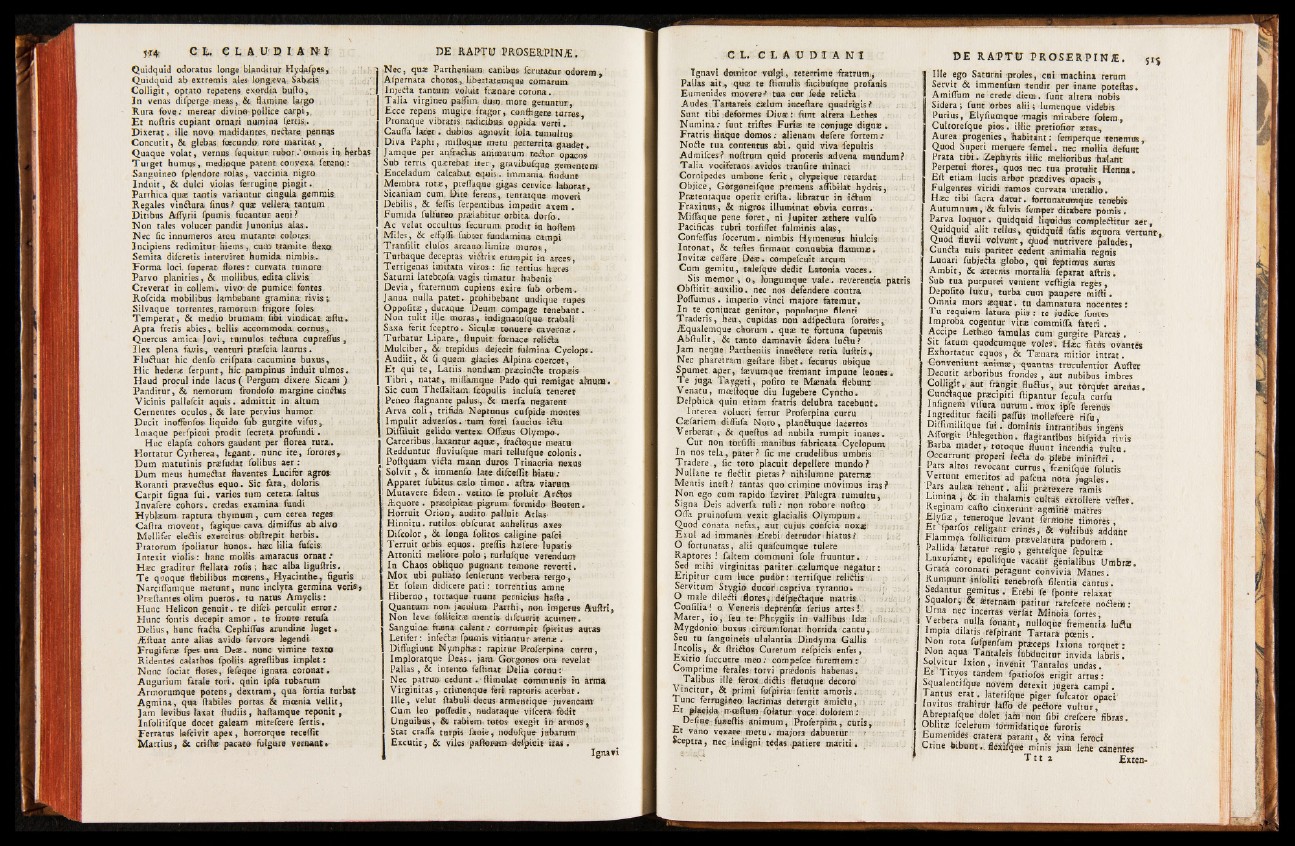 514 CL. CLAUDIANI
Quidquid odoratus longe blanditur Hydaſpes,
Quidquid ab extremis ales longæva Sabæis
Colligit, optato repetens exordia buſto,
In venas diſperge meas, & flamine largo
Rura fove: merear divino pollice carpi,
Et noſtris cupiant ornari numina ſertis.
Dixerat. ille novo madidantes nectare pennas
Concutit, & glebas fœcundo rore maritat,
Quaque volat, vernus ſequitur rubor: omnis in herbas
Turget humus, medioque patent convexa ſereno:
Sanguineo ſplendore roſas, vaccinia nigro
Induit, & dulci violas ferrugine pingit.
Parthica quæ tantis variantur cingula gemmis
Regales vinctura ſinus? quæ vellera tantum
Ditibus Aſſyrii ſpumis fucantur aeni?
Non tales volucer pandit Junonius alas.
Nec ſic innumeros arcu mutante colores
Incipiens redimitur hiems, cum tramite flexo
Semita diſcretis interviret humida nimbis.
Forma loci ſuperat flores: curvata tumore
Parvo planities, & mollibus edita clivis
Creverat in collem. vivo de pumice fontes
Roſcida mobilibus lambebant gramina rivis;
Silvaque torrentes ramorum frigore ſoles
Temperat, & medio brumam ſibi vindicat æſtu.
Apta fretis abies, bellis accommoda cornus,
Quercus amica Jovi, tumulos tectura cupreſſus,
Ilex plena favis, venturi præſcia laurus.
Fluctuat hic denſo criſpata cacumine buxus,
Hic hederæ ſerpunt, hic pampinus induit ulmos.
Haud procul inde lacus (Pergum dixere Sicani)
Panditur, & nemorum frondoſo margine cinctus
Vicinis palleſcit aquis. admittit in altum
Cernentes oculos, & late pervius humor
Ducit inoffenſos liquido ſub gurgite viſus,
Imaque perſpicui prodit ſecreta profundi.
Huc elapſa cohors gaudent per florea rura.
Hortatur Cytherea, legant. nunc ite, ſorores,
Dum matutinis præſudat ſolibus aer:
Dum meus humectat flaventes Lucifer agros
Rotanti prævectus equo. Sic fata, doloris
Carpit ſigna ſui. varios tum cetera ſaltus
Invaſere cohors. credas examina fundi
Hyblæum raptura thymum, cum cerea reges
Caſtra movent, fagique cava dimiſſus ab alvo
Mellifer electis exercitus obſtrepit herbis.
Pratorum ſpoliatur honos. hæc lilia fuſcis
Intexit violis: hanc mollis amaracus ornat:
Hæc graditur ſtellata roſis; hæc alba liguſtris.
Te quoque flebilibus mœrens, Hyacinthe, figuris
Narciſſumque metunt, nunc inclyta germina veris,
Præſtantes olim pueros. tu natus Amyclis:
Hunc Helicon genuit. te diſci perculit error:
Hunc fontis decepit amor. te fronte retuſa
Delius, hunc fracta Cephiſſus arundine luget.
Æſtuat ante alias avido fervore legendi
Frugiferæ ſpes una Deæ. nunc vimine texto
Ridentes calathos ſpoliis agreſtibus implet:
Nunc ſociat flores, ſeſeque ignara coronat.
Augurium fatale tori. quin ipſa tubarum
Armorumque potens, dextram, qua fortia turbat
Agmina, qua ſtabiles portas & mœnia vellit,
Jam levibus laxat ſtudiis, haſtamque reponit,
Inſolitiſque docet galeam miteſcere ſertis.
Ferratus laſcivit apex, horrorque receſſit
Martius, & criſtæ pacato fulgure vernant.
DE RAPTU PROSERPINÆ.
Nec, quæ Parthenium canibus ſcrutatur odorem,
Aſpernata choros, libertatemque comarum
Injecta tantum voluit frænare corona.
Talia virgineo paſſim dum more geruntur,
Ecce repens mugire fragor, confligere turres,
Pronaque vibratis radicibus oppida verti.
Cauſſa latet. dubios agnovit ſola tumultus
Diva Paphi, miſtoque metu perterrita gaudet.
Jamque per anfractus animarum rector opacos
Sub terris quærebat iter, gravibuſque gementem
Enceladum calcabat equis. immania findunt
Membra rotæ, preſſaque gigas cervice laborat,
Sicaniam cum Dite ferens, tentatque moveri
Debilis, & feſſis ſerpentibus impedit axem.
Fumida ſulfureo prælabitur orbita dorſo.
Ac velut occultus ſecurum prodit in hoſtem
Miles, & effoſſi ſubter fundamina campi
Tranſilit eluſos arcano limite muros,
Turbaque deceptas victrix erumpit in arces,
Terrigenas imitata viros: ſic tertius hæres
Saturni latebroſa vagis rimatur habenis
Devia, fraternum cupiens exire ſub orbem.
Janua nulla patet. prohibebant undique rupes
Oppoſitæ, duraque Deum compage tenebant.
Non tulit ille moras, indignatuſque trabali
Saxa ferit ſceptro. Siculæ tonuere cavernæ.
Turbatur Lipare, ſtupuit fornace relicta
Mulciber, & trepidus dejecit fulmina Cyclops.
Audiit, & ſi quem glacies Alpina coercet,
Et qui te, Latiis nondum præcincte tropæis
Tibri, natat, miſſamque Pado qui remigat alnum.
Sic cum Theſſaliam ſcopulis incluſa teneret
Peneo ſtagnante palus, & merſa negarent
Arva coli, trifida Neptunus cuſpide montes
Impulit adverſos. tum forti ſaucius ictu
Diſſiluit gelido vertex Oſſæus Olympo.
Carceribus laxantur aquæ, fractoque meatu
Redduntur fluviuſque mari telluſque colonis.
Poſtquam victa manu duros Trinacria nexus
Solvit, & immenſo late diſceſſit hiatu:
Apparet ſubitus cælo timor. aſtra viarum
Mutavere fidem. vetito ſe proluit Arctos
Æquore. præcipitat pigrum formido Booten.
Horruit Orion, audito palluit Atlas
Hinnitu. rutilos obſcurat anhelitus axes
Diſcolor, & longa ſolitos caligine paſci
Terruit orbis equos. preſſis hæſere lupatis
Attoniti meliore polo; rurſuſque verendum
In Chaos obliquo pugnant temone reverti.
Mox ubi pulſato ſenſerunt verbera tergo,
Et ſolem didicere pati: torrentius amne
Hiberno, tortaque ruunt pernicius haſta.
Quantum non jaculum Parthi, non impetus Auſtri,
Non leve ſollicitæ mentis diſcurrit acumen.
Sanguine fræna calent: corrumpit ſpiritus auras
Letifer: infectæ ſpumis vitiantur arenæ.
Diffugiunt Nymphæ: rapitur Proſerpina curru,
Imploratque Deas. jam Gorgonos ora revelat
Pallas, & intento feſtinat Delia cornu:
Nec patruo cedunt. ſtimulat communis in arma
Virginitas, crimenque feri raptoris acerbat.
Ille, velut ſtabuli decus armentique juvencam
Cum leo poſſedit, nudataque viſcera fodit
Unguibus, & rabiem totos exegit in armos,
Stat craſſa turpis ſanie, nodoſque jubarum
Excutit, & viles paſtorum deſpicit iras.
Ignavi
CL. CLAUDIANI
Ignavi domitor vulgi, teterrime fratrum,
Pallas ait, quæ te ſtimulis facibuſque profanis
Eumenides movere? tua cur ſede relicta
Audes Tartareis cælum inceſtare quadrigis?
Sunt tibi deformes Divæ: ſunt altera Lethes
Numina: ſunt triſtes Furiæ te conjuge dignæ.
Fratris linque domos: alienam deſere ſortem:
Nocte tua contentus abi. quid viva ſepultis
Admiſces? noſtrum quid proteris advena mundum?
Talia vociferans avidos tranſire minaci
Cornipedes umbone ferit, clypeique retardat
Objice, Gorgoneiſque premens aſſibilat hydris,
Prætentaque operit criſta. libratur in ictum
Fraxinus, & nigros illuminat obvia currus.
Miſſaque pene foret, ni Jupiter æthere vulſo
Pacificas rubri torſiſſet fulminis alas,
Confeſſus ſocerum. nimbis Hymenæus hiulcis
Intonat, & teſtes firmant connubia flammæ.
Invitæ ceſſere Deæ. compeſcuit arcum
Cum gemitu, taleſque dedit Latonia voces.
Sis memor, o, longumque vale. reverentia patris
Obſtitit auxilio. nec nos defendere contra
Poſſumus. imperio vinci majore fatemur.
In te conjurat genitor, populoque ſilenti
Traderis, heu, cupidas non adſpectura ſorores,
Æqualemque chorum. quæ te fortuna ſupernis
Abſtulit, & tanto damnavit ſidera luctu?
Jam neque Partheniis innectere retia luſtris,
Nec pharetram geſtare libet. ſecurus ubique
Spumet aper, ſævumque fremant impune leones.
Te juga Taygeti, poſito te Mænala flebunt
Venatu, mœſtoque diu lugebere Cyntho.
Delphica quin etiam fratris delubra tacebunt.
Interea volucri fertur Proſerpina curru
Cæſariem diffuſa Noto, planctuque lacertos
Verberat, & queſtus ad nubila rumpit inanes.
Cur non torſiſti manibus fabricata Cyclopum
In nos tela, pater? ſic me crudelibus umbris
Tradere, ſic toto placuit depellere mundo?
Nullane te flectit pietas? nihilumne paternæ
Mentis ineſt? tantas quo crimine movimus iras?
Non ego cum rapido ſæviret Phlegra tumultu,
Signa Deis adverſa tuli: non robore noſtro
Oſſa pruinoſum vexit glacialis Olympum.
Quod conata nefas, aut cujus conſcia noxæ
Exul ad immanes Erebi detrudor hiatus?
O fortunatas, alii quaſcumque tulere
Raptores! ſaltem communi ſole fruuntur.
Sed mihi virginitas pariter cælumque negatur:
Eripitur cum luce pudor: terriſque relictis
Servitum Stygio ducor captiva tyranno.
O male dilecti flores, deſpectaque matris
Conſilia! o Veneris deprenſæ ſerius artes!
Mater, io, ſeu te Phrygiis in vallibus Idæ
Mygdonio buxus circumſonat horrida cantu,
Seu tu ſanguineis ululantia Dindyma Gallis
Incolis, & ſtrictos Curetum reſpicis enſes,
Exitio ſuccurre meo: compeſce furentem:
Comprime ferales torvi prædonis habenas.
Talibus ille ferox dictis fletuque decoro
Vincitur, & primi ſuſpiria ſentit amoris.
Tunc ferrugineo lacrimas detergit amictu,
Et placida mœſtum ſolatur voce dolorem:
Deſine funeſtis animum, Proſerpina, curis,
Et vano vexare metu. majora dabuntur
Sceptra, nec indigni tædas patiere mariti.
DE RAPTU PROSERPINÆ. 515
Ille ego Saturni proles, cui machina rerum
Servit & immenſum tendit per inane poteſtas.
Amiſſum ne crede diem. ſunt altera nobis
Sidera; ſunt orbes alii; lumenque videbis
Purius, Elyſiumque magis mirabere ſolem,
Cultoreſque pios. illic pretioſior ætas,
Aurea progenies, habitant: ſemperque tenemus,
Quod Superi meruere ſemel. nec mollia deſunt
Prata tibi. Zephyris illic melioribus halant
Perpetui flores, quos nec tua protulit Henna.
Eſt etiam lucis arbor prædives opacis,
Fulgentes viridi ramos curvata metallo.
Hæc tibi ſacra datur. fortunatumque tenebis
Autumnum, & fulvis ſemper ditabere pomis.
Parva loquor. quidquid liquidus complectitur aer,
Quidquid alit tellus, quidquid ſalis æquora vertunt,
Quod fluvii volvunt, quod nutrivere paludes,
Cuncta tuis pariter cedent animalia regnis
Lunari ſubjecta globo, qui ſeptimus auras
Ambit, & æternis mortalia ſeparat aſtris.
Sub tua purpurei venient veſtigia reges,
Depoſito luxu, turba cum paupere miſti.
Omnia mors æquat. tu damnatura nocentes:
Tu requiem latura piis: te judice ſontes
Improba cogentur vitæ commiſſa fateri.
Accipe Lethæo famulas cum gurgite Parcas.
Sit fatum quodcumque voles. Hæc fatus ovantes
Exhortatur equos, & Tænara mitior intrat.
Conveniunt animæ, quantas truculentior Auſter
Decutit arboribus frondes, aut nubibus imbres
Colligit, aut frangit fluctus, aut torquet arenas.
Cunctaque præcipiti ſtipantur ſecula curſu
Inſignem viſura nurum. mox ipſe ſerenus
Ingreditur facili paſſus molleſcere riſu,
Diſſimiliſque ſui. dominis intrantibus ingens
Aſſurgit Phlegethon. flagrantibus hiſpida rivis
Barba madet, totoque fluunt incendia vultu.
Occurrunt properi lecta de plebe miniſtri.
Pars altos revocant currus, frænifque ſolutis
Vertunt emeritos ad paſcua nota jugales.
Pars aulæa tenent. alii prætexere ramis
Limina, & in thalamis cultas extollere veſtes.
Reginam caſto cinxerunt agmine matres
Elyſiæ, teneroque levant ſermone timores,
Et ſparſos religant crines, & vultibus addunt
Flammea ſollicitum prævelatura pudorem.
Pallida lætatur regio, genteſque ſepultæ
Luxuriant, epuliſque vacant genialibus Umbræ.
Grata coronati peragunt convivia Manes.
Rumpunt inſoliti tenebroſa ſilentia cantus.
Sedantur gemitus. Erebi ſe ſponte relaxat
Squalor, & æternam patitur rareſcere noctem:
Urna nec incertas verſat Minoia ſortes,
Verbera nulla ſonant, nulloque frementia luctu
Impia dilatis reſpirant Tartara pœnis.
Non rota ſuſpenſum præceps Ixiona torquet:
Non aqua Tantaleis ſubducitur invida labris.
Solvitur Ixion, invenit Tantalus undas.
Et Tityos tandem ſpatioſos erigit artus:
Squalentiſque novem detexit jugera campi.
Tantus erat. lateriſque piger ſulcator opaci
Invitus trahitur laſſo de pectore vultur,
Abreptaſque dolet jam non ſibi creſcere fibras.
Oblitæ ſcelerum formidatique furoris
Eumenides cratera parant, & vina feroci
Crine bibunt. flexiſque minis jam lene canentes
Ttt 2 Exten-